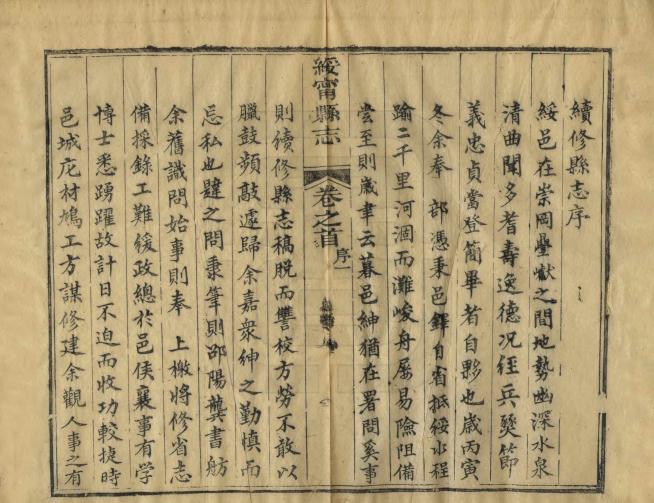 續修縣志序
綏邑在崇岡疊巘之間地勢幽深水泉
清曲聞多耆壽逸德况經兵燹節
義忠貞當登簡畢者自夥也歲丙寅
冬余奉 部憑秉邑鐸自省抵綏水程
踰二千里河涸而灘峻舟屢易險阻備
嘗至則歲聿云暮邑紳猶在署問奚事
綏甯縣志
卷之首
序一
則續修縣志稿脱而讐校方勞不敢以
臘鼓頻敲遽歸余嘉衆紳之勤慎而
忘私也韙之問秉筆則邵陽龔書舫
余舊識問始事則奉 上檄將修省志
備採錄工難緩政總於邑侯襄事有學
博士悉踴躍故計日不迫而收功較捷時
邑城庀材鳩工方謀修建余觀人事之有